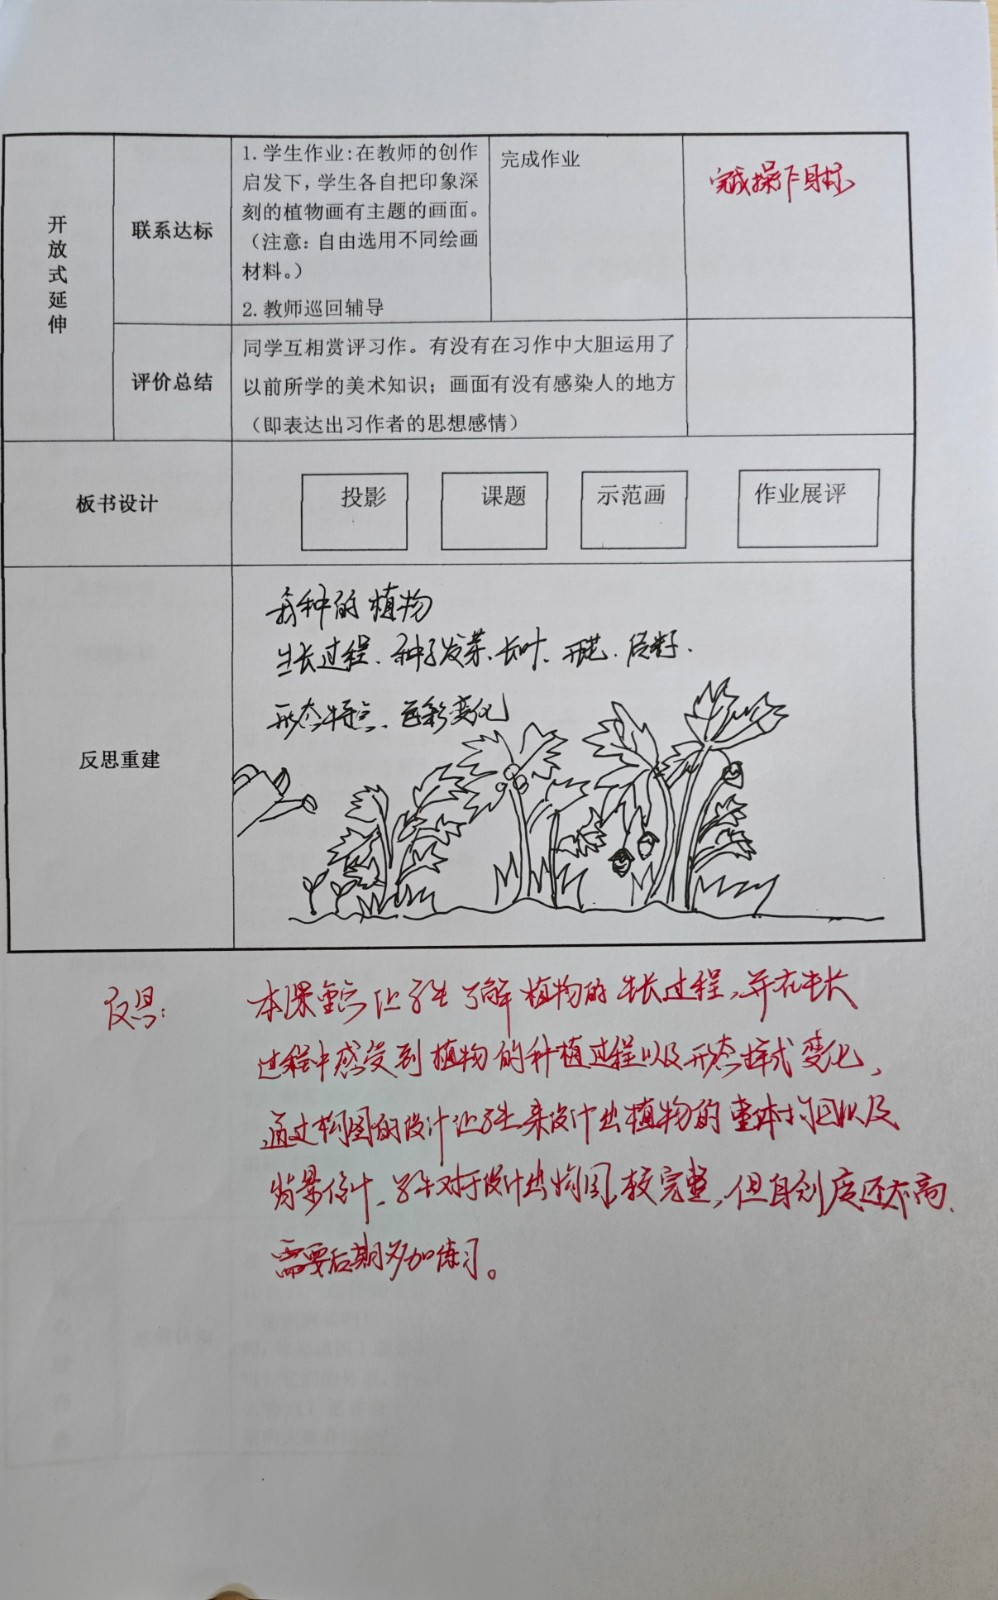 开放式延伸
联系达标
1.学生作业:在教师的创作
启发下，学生各自把印象深
刻的植物画有主题的画面。
（注意：自由选用不同绘画
材料。）
2.教师巡回辅导
完成作业
完成操下目标
评价总结
同学互相赏评习作。有没有在习作中大胆运用了
以前所学的美术知识；画面有没有感染人的地方
（即表达出习作者的思想感情）
板书设计
投影
课题
示范画
作业展评
反思重建
种的植物
生长过程、种子发芽、长叶、开花、结籽.
形态特点、色彩变化
反思:
本课重点让学生了解植物的生长过程,并在生长
过程中感受到植物的种植过程以及形态样式变化,
通过构图的设计让学生来设计出植物的整体构图以及
背景设计.学生对于设计出构图较完整,但自创度还不高.
需要后期多加练习。